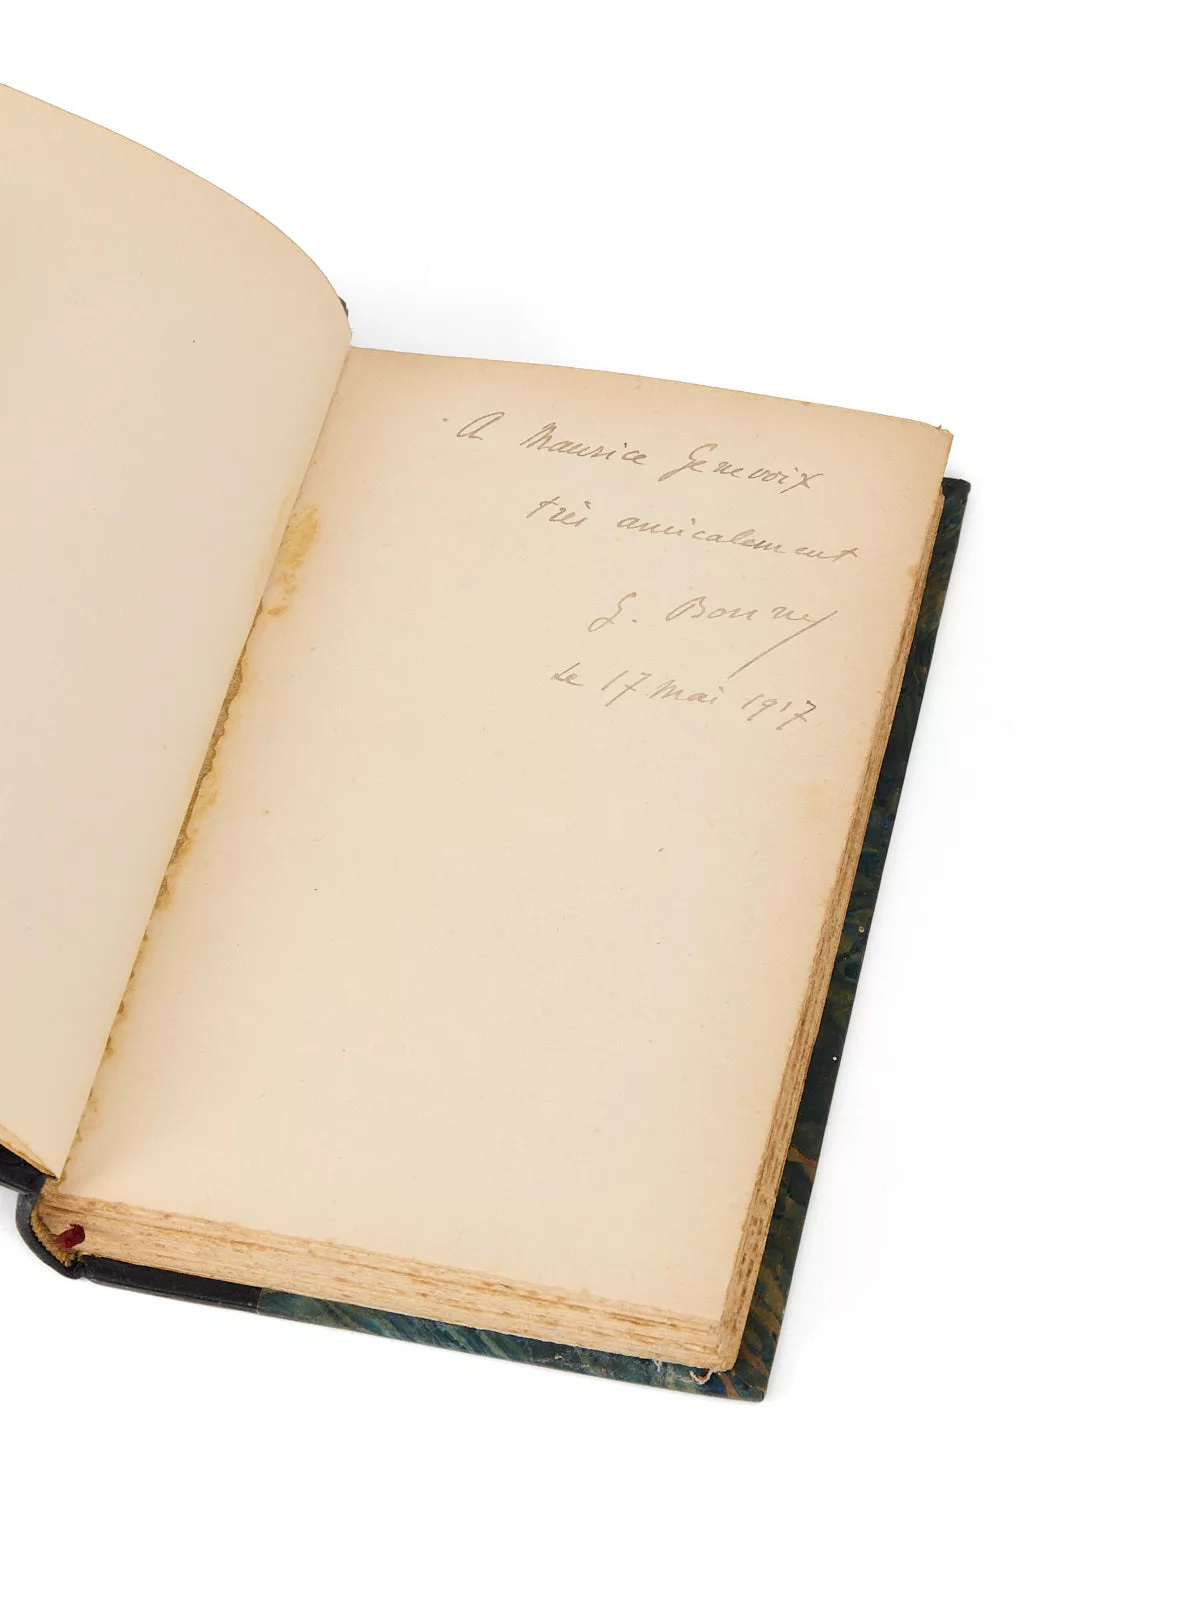 A Maurice Genevoix
très amicalement
G. Bonnef
le 17 Mai 1917